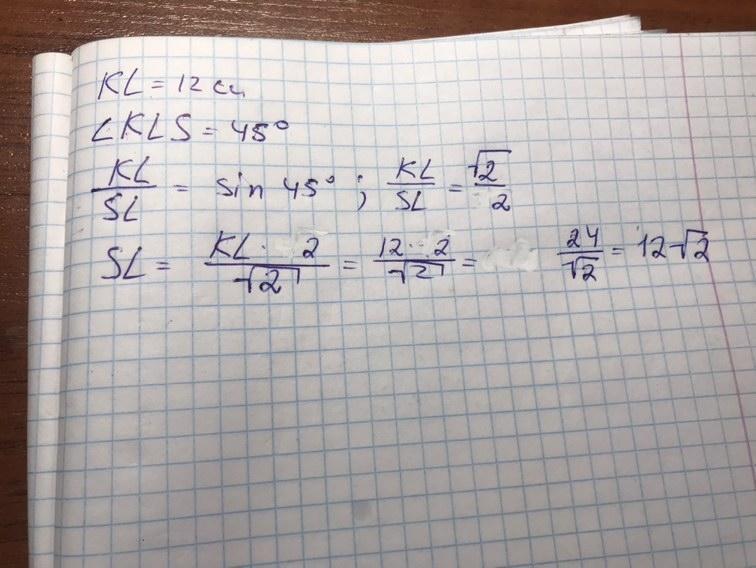 KL = 12 см
∠KLS = 45°
KL/SL = sin 45° ; KL/SL = √2/2
SL = KL · 2/√2 = 12 · 2/√2 = 24/√2 = 12√2